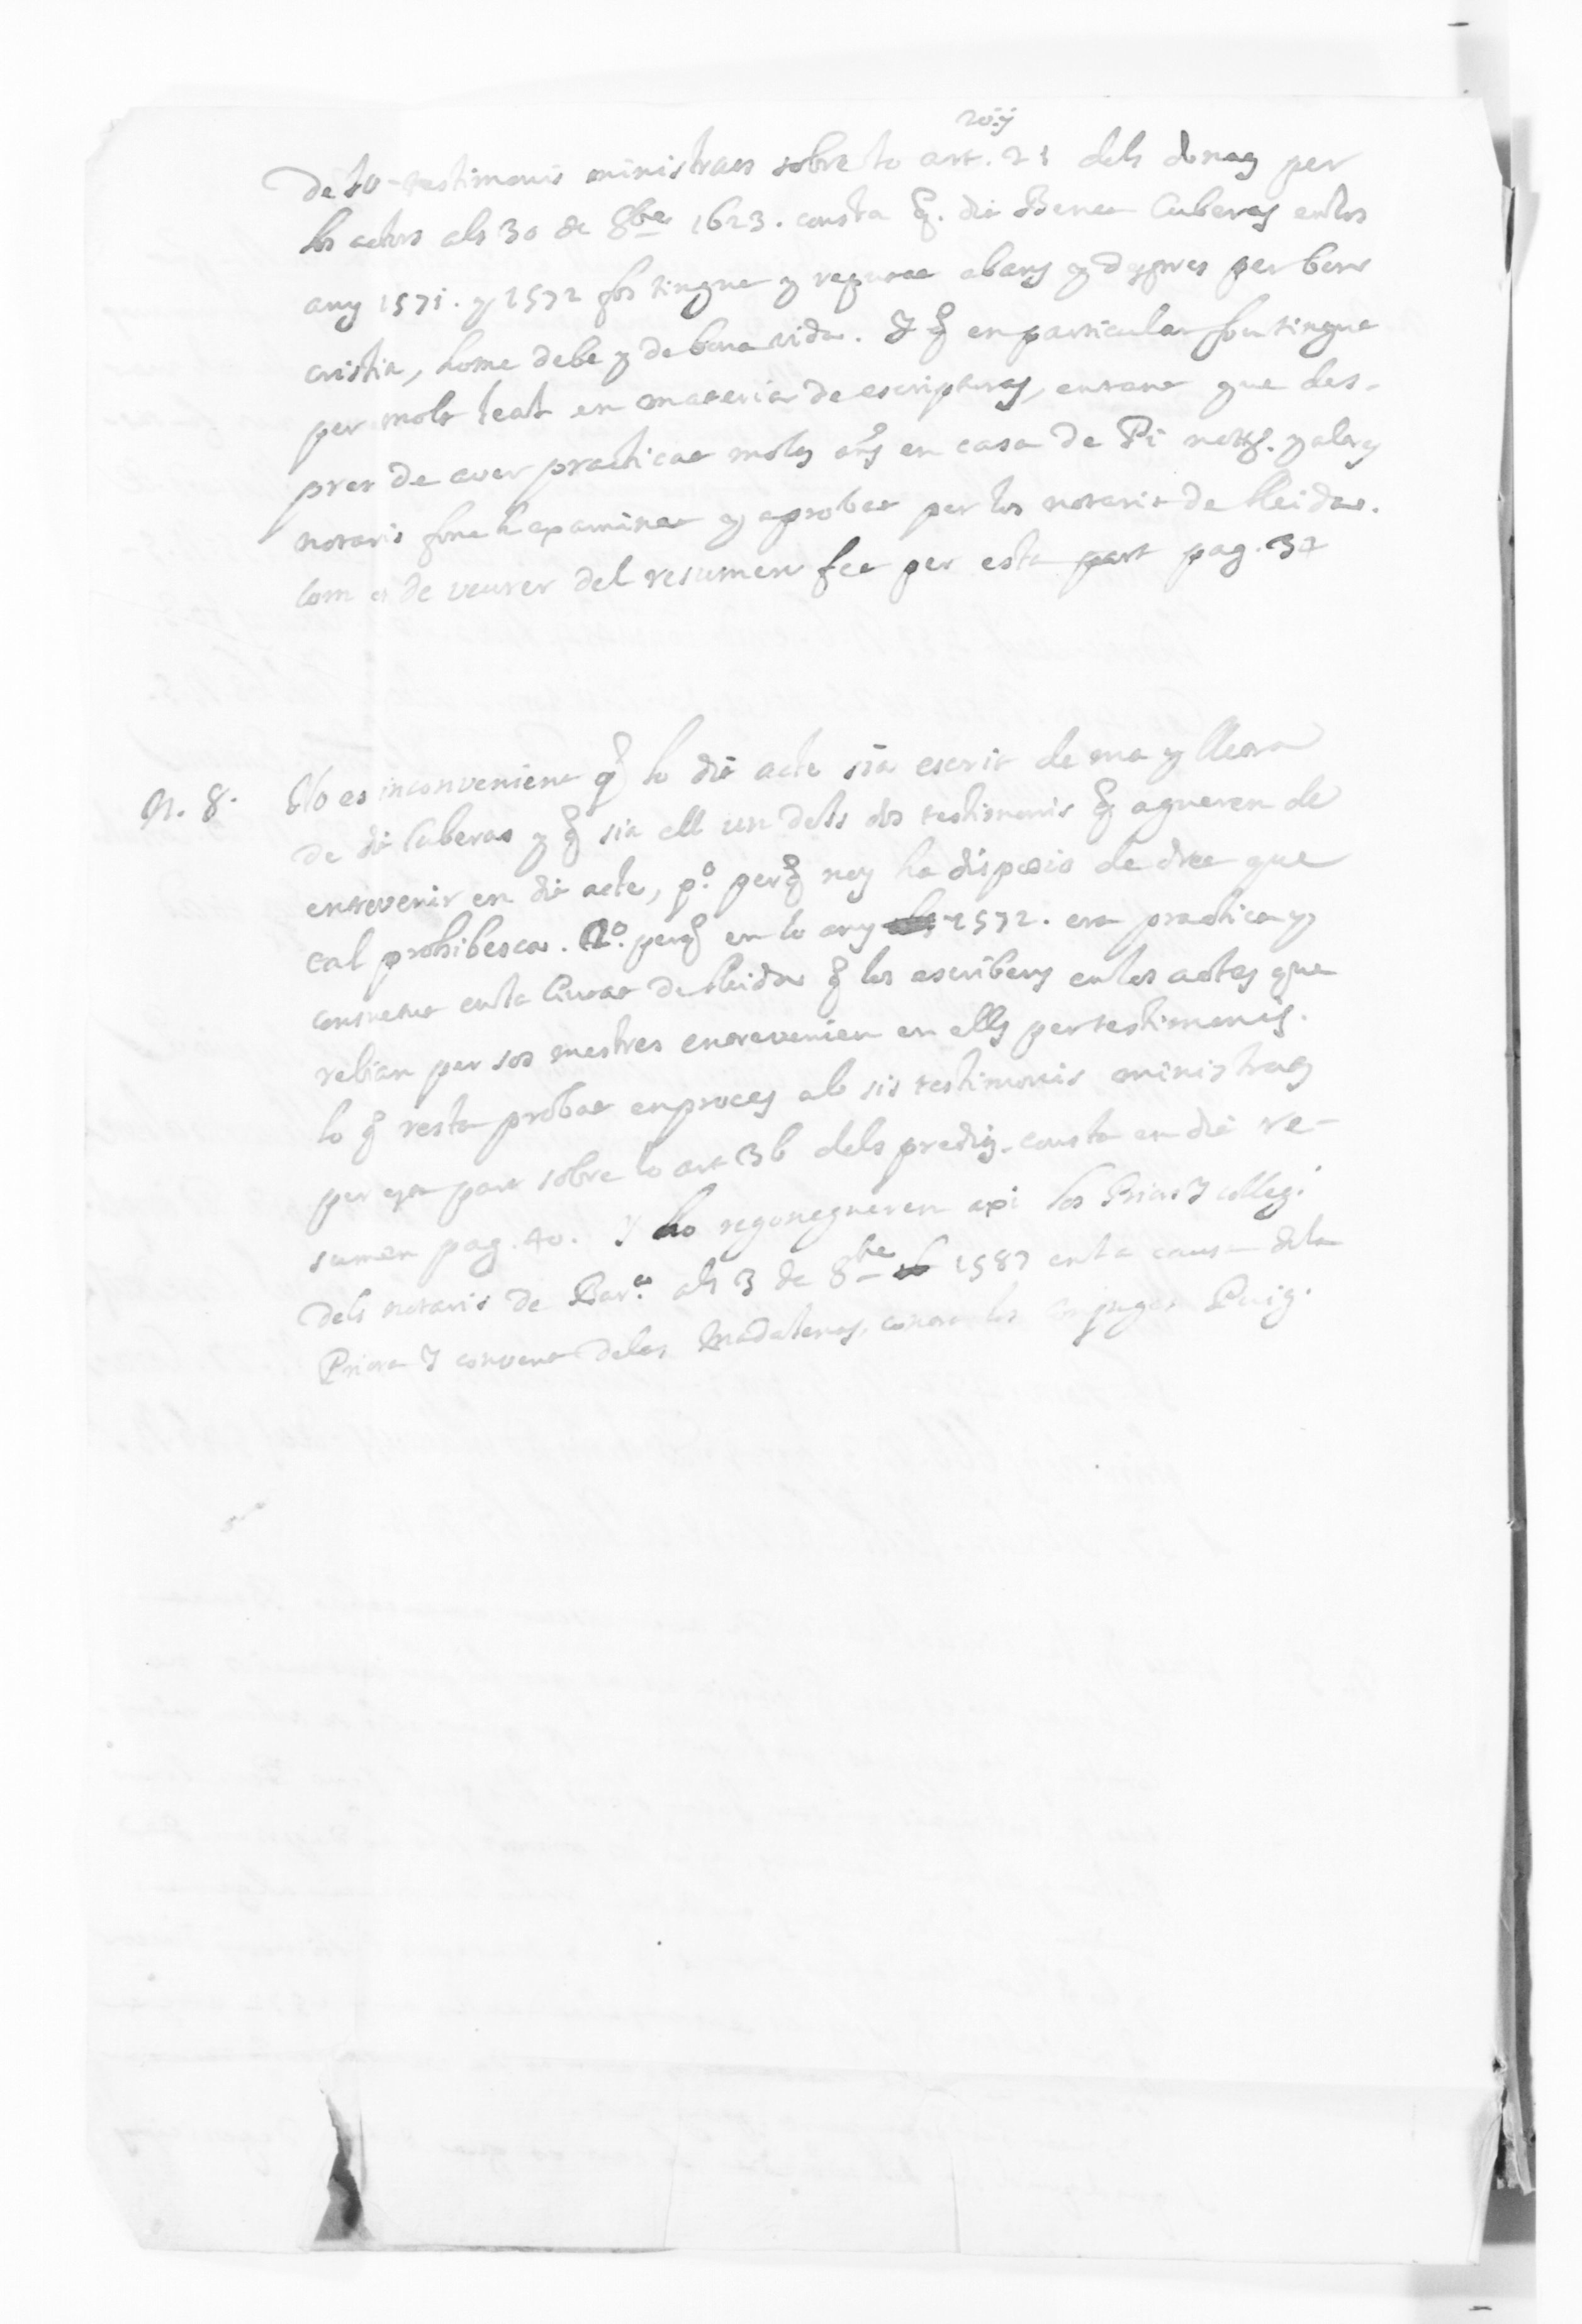 20 ij
De 10 testimonis ministrats sobre lo art. 21 dels donats per
los actors als 30 de 8bre 1623. consta q. dit Benet Cuberes en los
any 1571. y 1572 fos tingut y reputat abans y despres per bon
cristia, home de be y de bona vida. Y q en particular fou tingut
per molt leal en materia de escripturas, entant que des-
pres de aver practicat molts anys en casa de Pi notts. y altres
notaris fonch examinat y aprobat per los notaris de Lleida.
com es de veurer del resumen fet per esta part pag. 37
N. 8. No es inconvenient q lo dit acte sia escrit de ma y lletra
de dit Cuberas y q sia ell un dels dos testimonis q agueren de
entrevenir en dit acte, p.º perq noy ha disposio de dret que
tal prohibesca. 2.º perq en lo any 1572. era practica y
consuetut en la Ciutat de Lleida q los escribens en los actes que
rebian per sos mestres entrevenien en ells per testimonis.
lo q resta probat en proces ab sis testimonis ministrats
per esta part sobre lo art 36 dels predits. consta en dit re-
sumen pag. 40. Y ho regonegueren axi los Priors Y collegi
dels notaris de Bar.ª als 3 de 8bre 1587 en la causa de la
Priora Y convent de las Madalenas, contra los conjuges Puig.